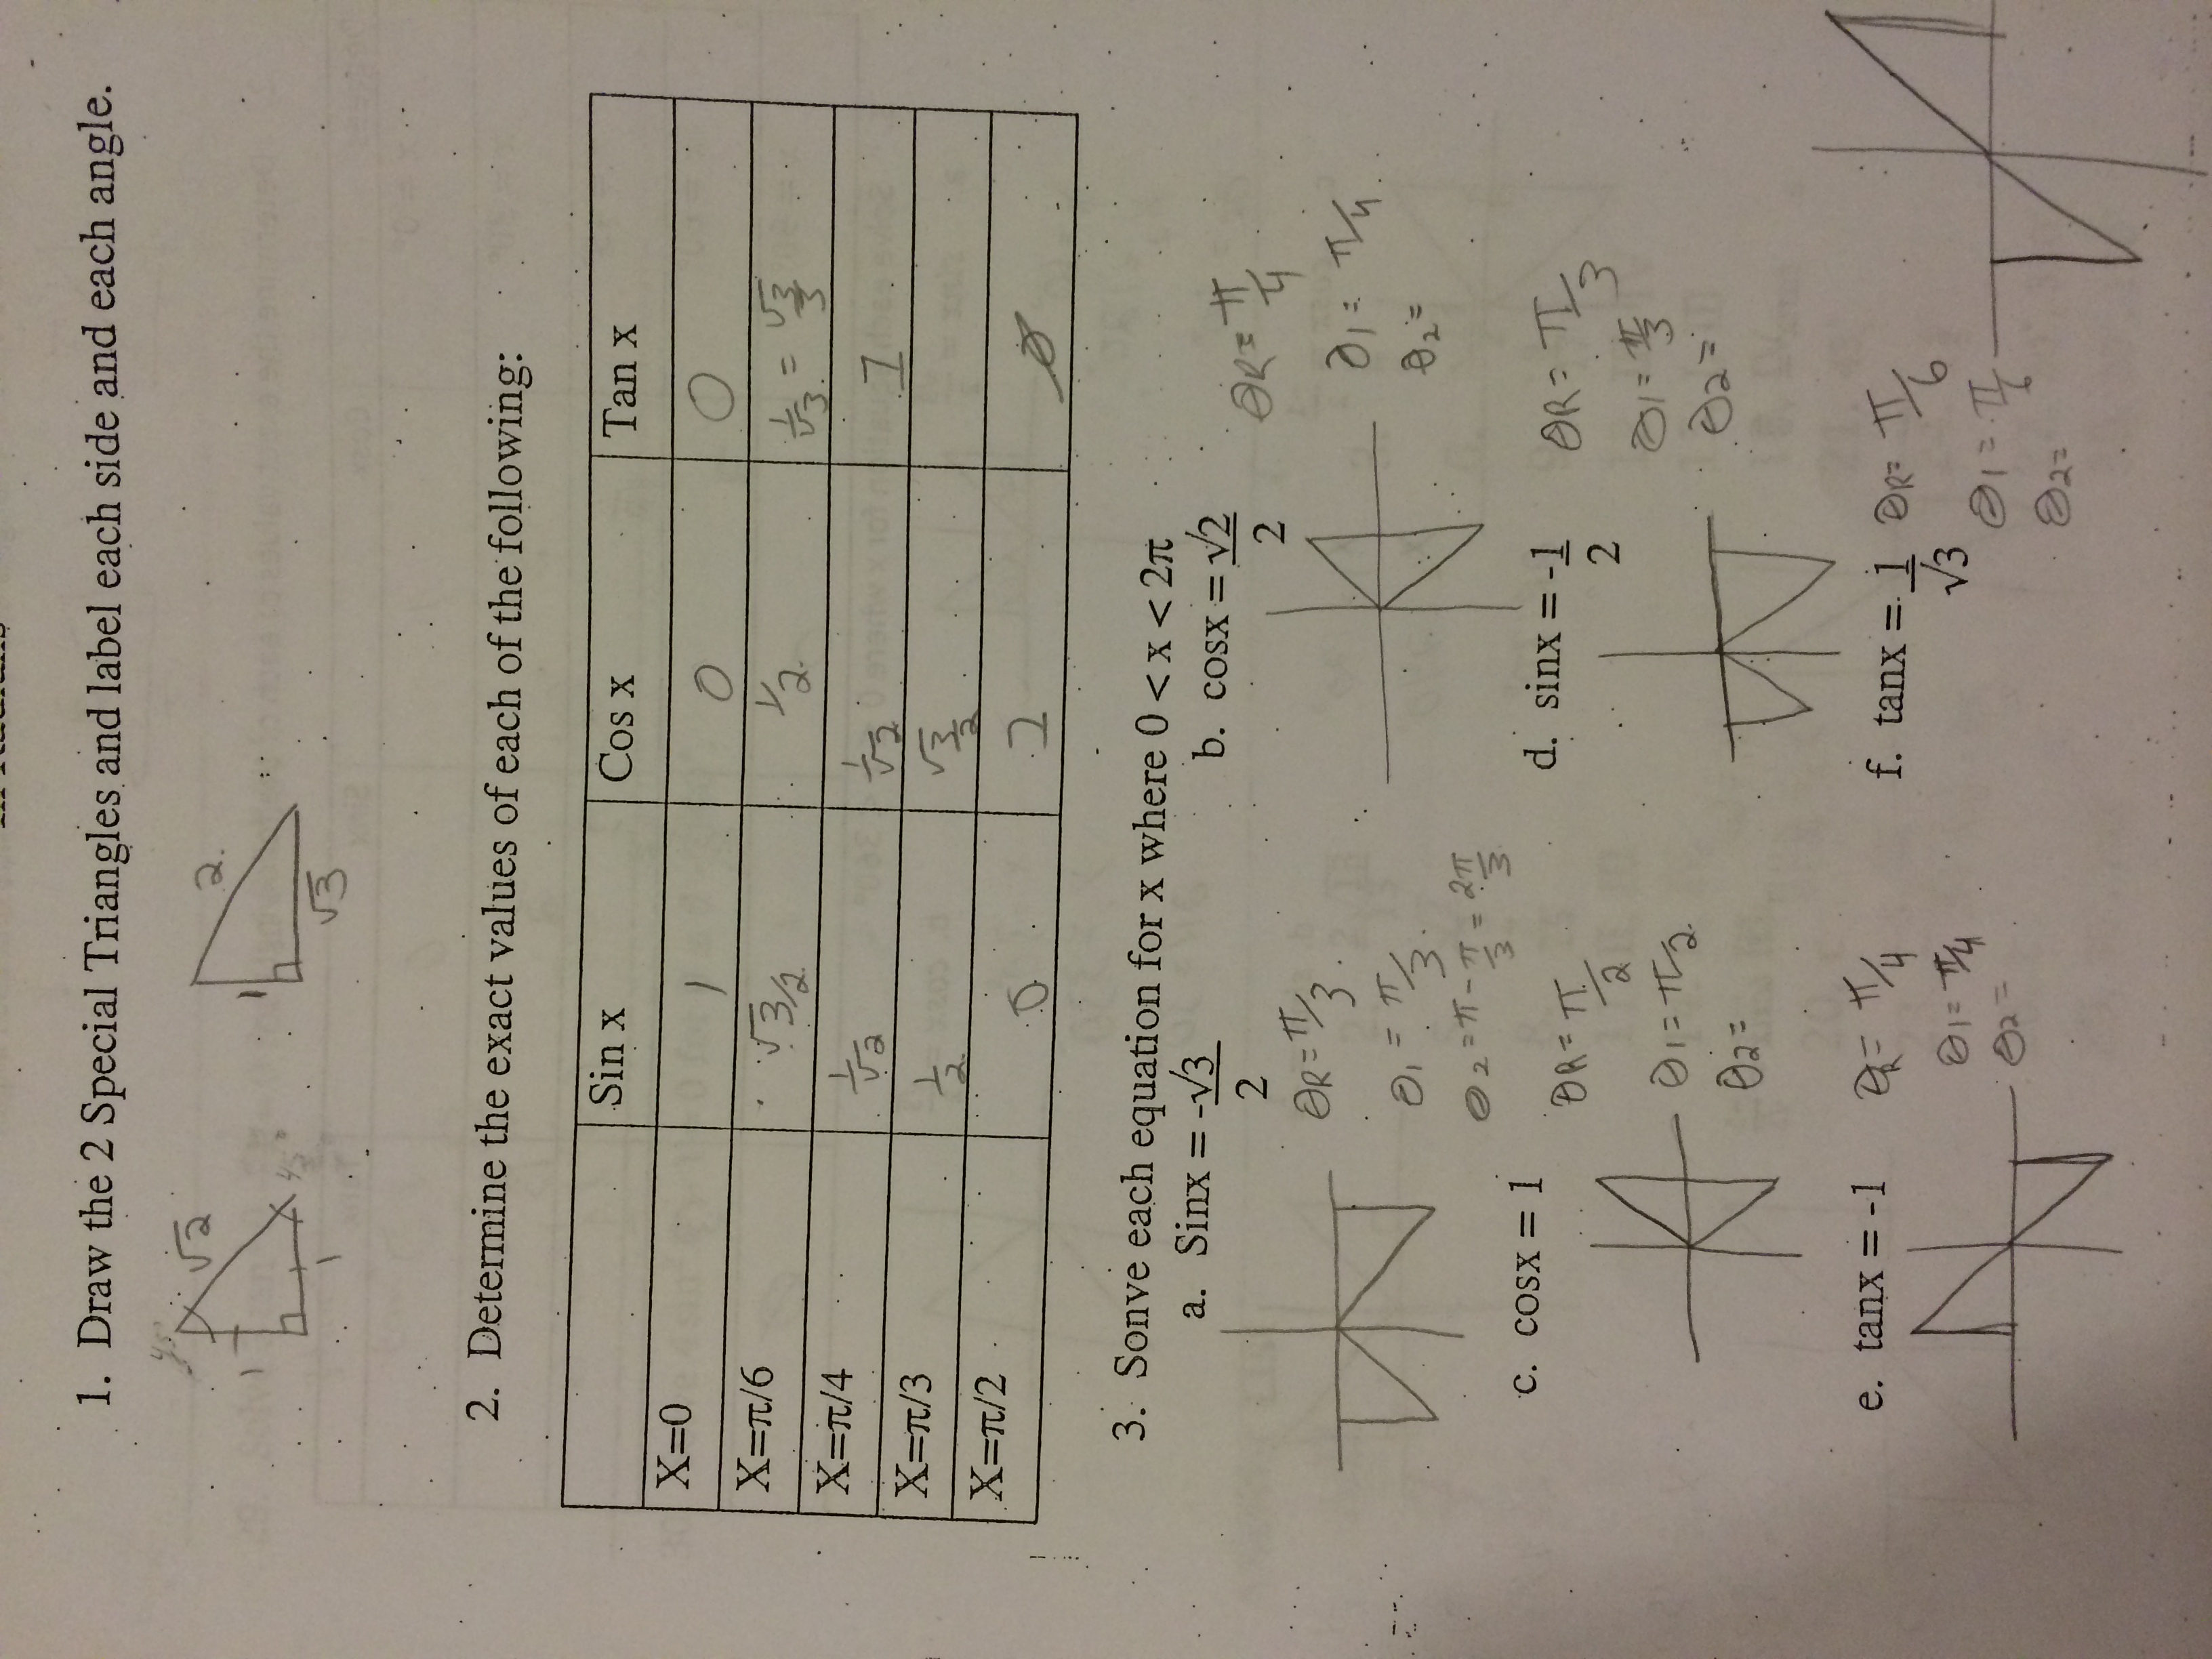 In Radians
1. Draw the 2 Special Triangles and label each side and each angle.
45° √2 1 45° 1
1 2 √3
2. Determine the exact values of each of the following:
Sin x Cos x Tan x
X=0 1 0 0
X=π/6 √3/2 1/2 1/√3 = √3/3
X=π/4 1/√2 1/√2 1
X=π/3 1/2 √3/2
X=π/2 0 1 ∅
3. Sonve each equation for x where 0 < x < 2π
a. Sinx = -√3/2
θR = π/3
θ1 = π/3
θ2 = π - π/3 = 2π/3
b. cosx = √2/2
θR = π/4
θ1 = π/4
θ2 =
c. cosx = 1
θR = π/2
θ1 = π/2
θ2 =
d. sinx = -1/2
θR = π/3
θ1 = π/3
θ2 =
e. tanx = -1
θR = π/4
θ1 = π/4
θ2 =
f. tanx = 1/√3
θR = π/6
θ1 = π/6
θ2 =